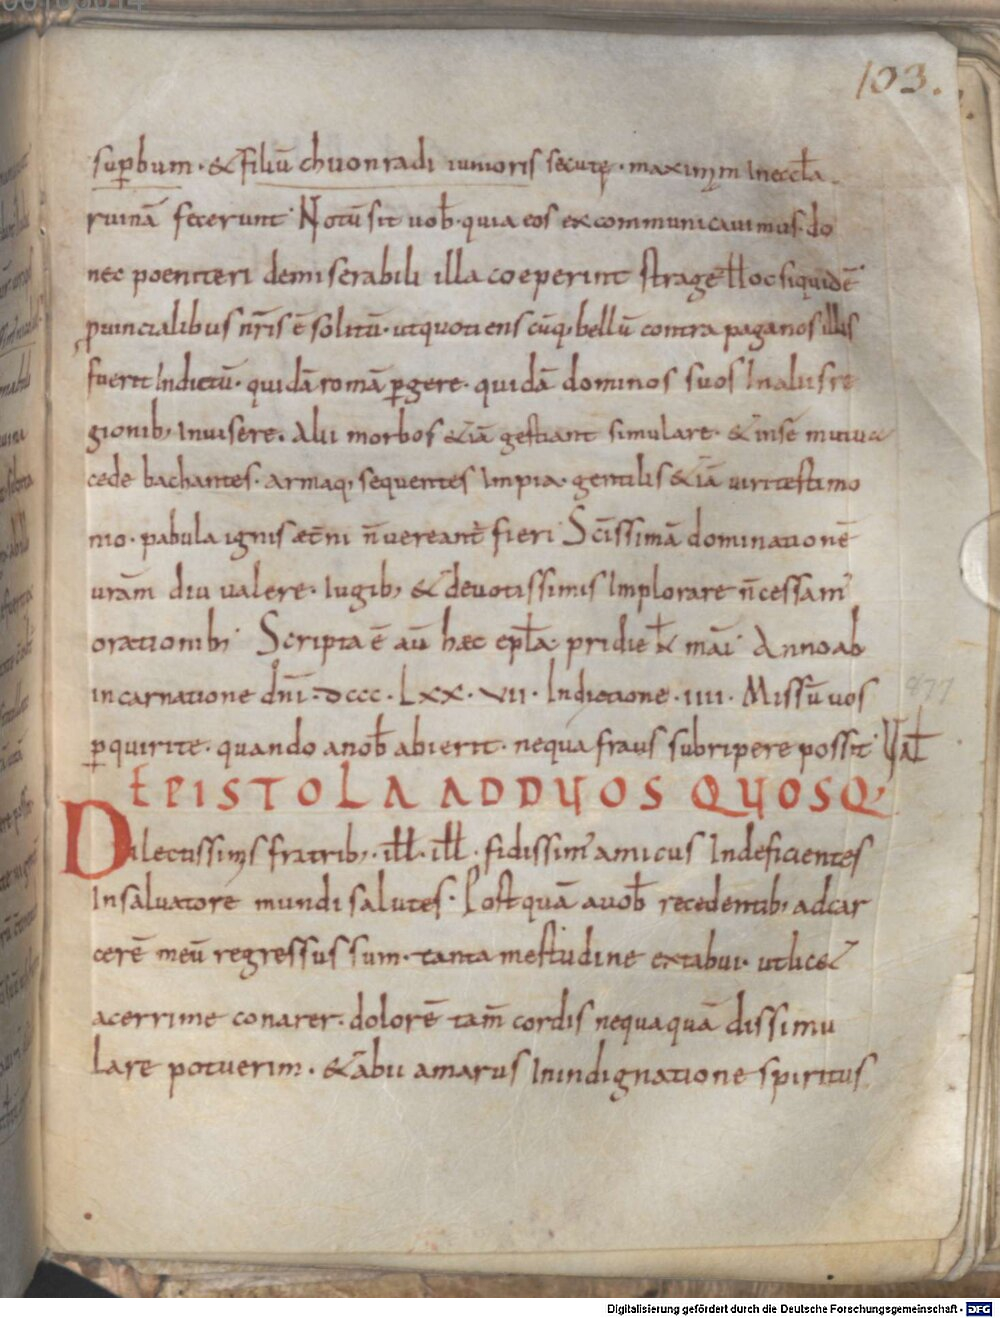 103.
sup̄bum · & filiū chuonradi iunioris secutę · maximam In eccl̄a
ruinā fecerunt · Notū sit uob̄ · quia eos excommunicauimus · do
nec poeniteri demiserabili illa coeperint strage · Hoc siquidē
ꝓuincialibus nr̄is ē solitū · ut quotiens cūq; bellū contra paganos illis
fuerit Indictū · quidā romā ꝑgere · quidā dominos suos In aliis re
gionib; Inuisere · Alii morbos &iā gestiant simulare · & inse mutua
cede bachantes · armaq; sequentes Impia · gentilis &iā uiri testimo
nio · pabula ignis aet̄ni n̄ uereant̄ fieri · Sc̄issimā dominationē
uram̄ diu ualere · Iugib; & deuotissimis Implorare n̄cessam̄
orationib; · Scripta ē aū haec epl̄a · pridie kł mai · Anno ab
incarnatione dn̄i · dccc · Lxx · VII · Indictione · IIII · Missū uos
ꝑquirite · quando a nob̄ abierit · nequa fraus subripere possit · Val̄
877
EPISTOLA AD DUOS QUOSQ;
Dilectissimis fratrib; · ill̄ · ill̄ · fidissim' amicus Indeficientes
In saluatore mundi salutes · Postquā a uob̄ recedentib; ad car
cerē meū regressus sum · tanta mestitudine extabui · ut lic&
acerrime conarer · dolorē tam̄ cordis nequaquā dissimu
lare potuerim · & ābii amarus In indignatione spiritus
Digitalisierung gefördert durch die Deutsche Forschungsgemeinschaft - DFG